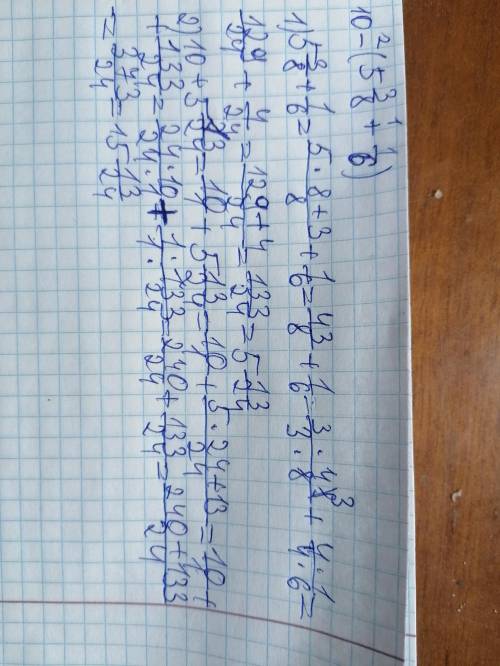 10-²(5 3/8 +¹ 1/6)
1) 5 3/8 + 1/6 = 5·8+3/8 + 1/6 = 43/8 + 1/6 = 3·43/3·8 + 4·1/4·6 =
129/24 + 4/24 = 129+4/24 = 133/24 = 5 13/24
2) 10 + 5 13/24 = 10/1 + 5 13/24 = 10/1 + 5·24+13/24 = 10/1 +
+ 133/24 = 24·10/24·1 + 1·133/1·24 = 240/24 + 133/24 = 240+133/24
= 373/24 = 15 13/24